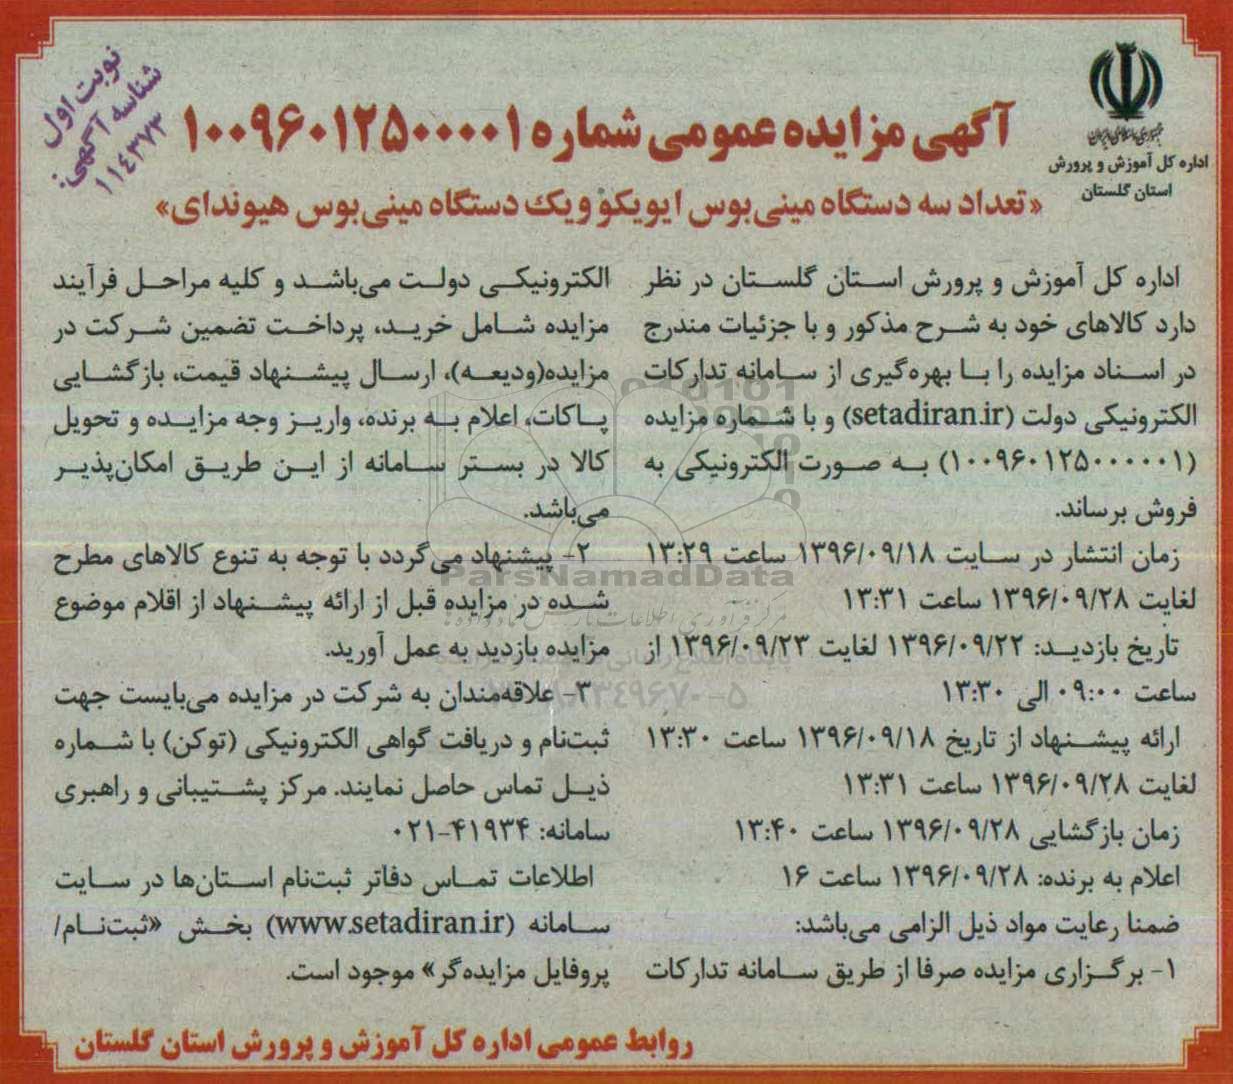 نوبت اول
شناسه آگهی:
۱۱۴۳۷۳
جمهوری اسلامی ایران
اداره کل آموزش و پرورش
استان گلستان
آگهی مزایده عمومی شماره ۱۰۰۹۶۰۱۲۵۰۰۰۰۱
«تعداد سه دستگاه مینی‌بوس ایویکو و یک دستگاه مینی‌بوس هیوندای»
اداره کل آموزش و پرورش استان گلستان در نظر
دارد کالاهای خود به شرح مذکور و با جزئیات مندرج
در اسناد مزایده را با بهره‌گیری از سامانه تدارکات
الکترونیکی دولت (setadiran.ir) و با شماره مزایده
(۱۰۰۹۶۰۱۲۵۰۰۰۰۰۱) به صورت الکترونیکی به
فروش برساند.
زمان انتشار در سایت ۱۳۹۶/۰۹/۱۸ ساعت ۱۳:۲۹
لغایت ۱۳۹۶/۰۹/۲۸ ساعت ۱۳:۳۱
تاریخ بازدید: ۱۳۹۶/۰۹/۲۲ لغایت ۱۳۹۶/۰۹/۲۳ از
ساعت ۰۹:۰۰ الی ۱۳:۳۰
ارائه پیشنهاد از تاریخ ۱۳۹۶/۰۹/۱۸ ساعت ۱۳:۳۰
لغایت ۱۳۹۶/۰۹/۲۸ ساعت ۱۳:۳۱
زمان بازگشایی ۱۳۹۶/۰۹/۲۸ ساعت ۱۳:۴۰
اعلام به برنده: ۱۳۹۶/۰۹/۲۸ ساعت ۱۶
ضمنا رعایت مواد ذیل الزامی می‌باشد:
۱- برگزاری مزایده صرفا از طریق سامانه تدارکات
الکترونیکی دولت می‌باشد و کلیه مراحل فرآیند
مزایده شامل خرید، پرداخت تضمین شرکت در
مزایده(ودیعه)، ارسال پیشنهاد قیمت، بازگشایی
پاکات، اعلام به برنده، واریز وجه مزایده و تحویل
کالا در بستر سامانه از این طریق امکان‌پذیر
می‌باشد.
۲- پیشنهاد می‌گردد با توجه به تنوع کالاهای مطرح
شده در مزایده قبل از ارائه پیشنهاد از اقلام موضوع
مزایده بازدید به عمل آورید.
۳- علاقه‌مندان به شرکت در مزایده می‌بایست جهت
ثبت‌نام و دریافت گواهی الکترونیکی (توکن) با شماره
ذیل تماس حاصل نمایند. مرکز پشتیبانی و راهبری
سامانه: ۴۱۹۳۴-۰۲۱
اطلاعات تماس دفاتر ثبت‌نام استان‌ها در سایت
سامانه (www.setadiran.ir) بخش «ثبت‌نام/
پروفایل مزایده‌گر» موجود است.
ParsNamadData
روابط عمومی اداره کل آموزش و پرورش استان گلستان